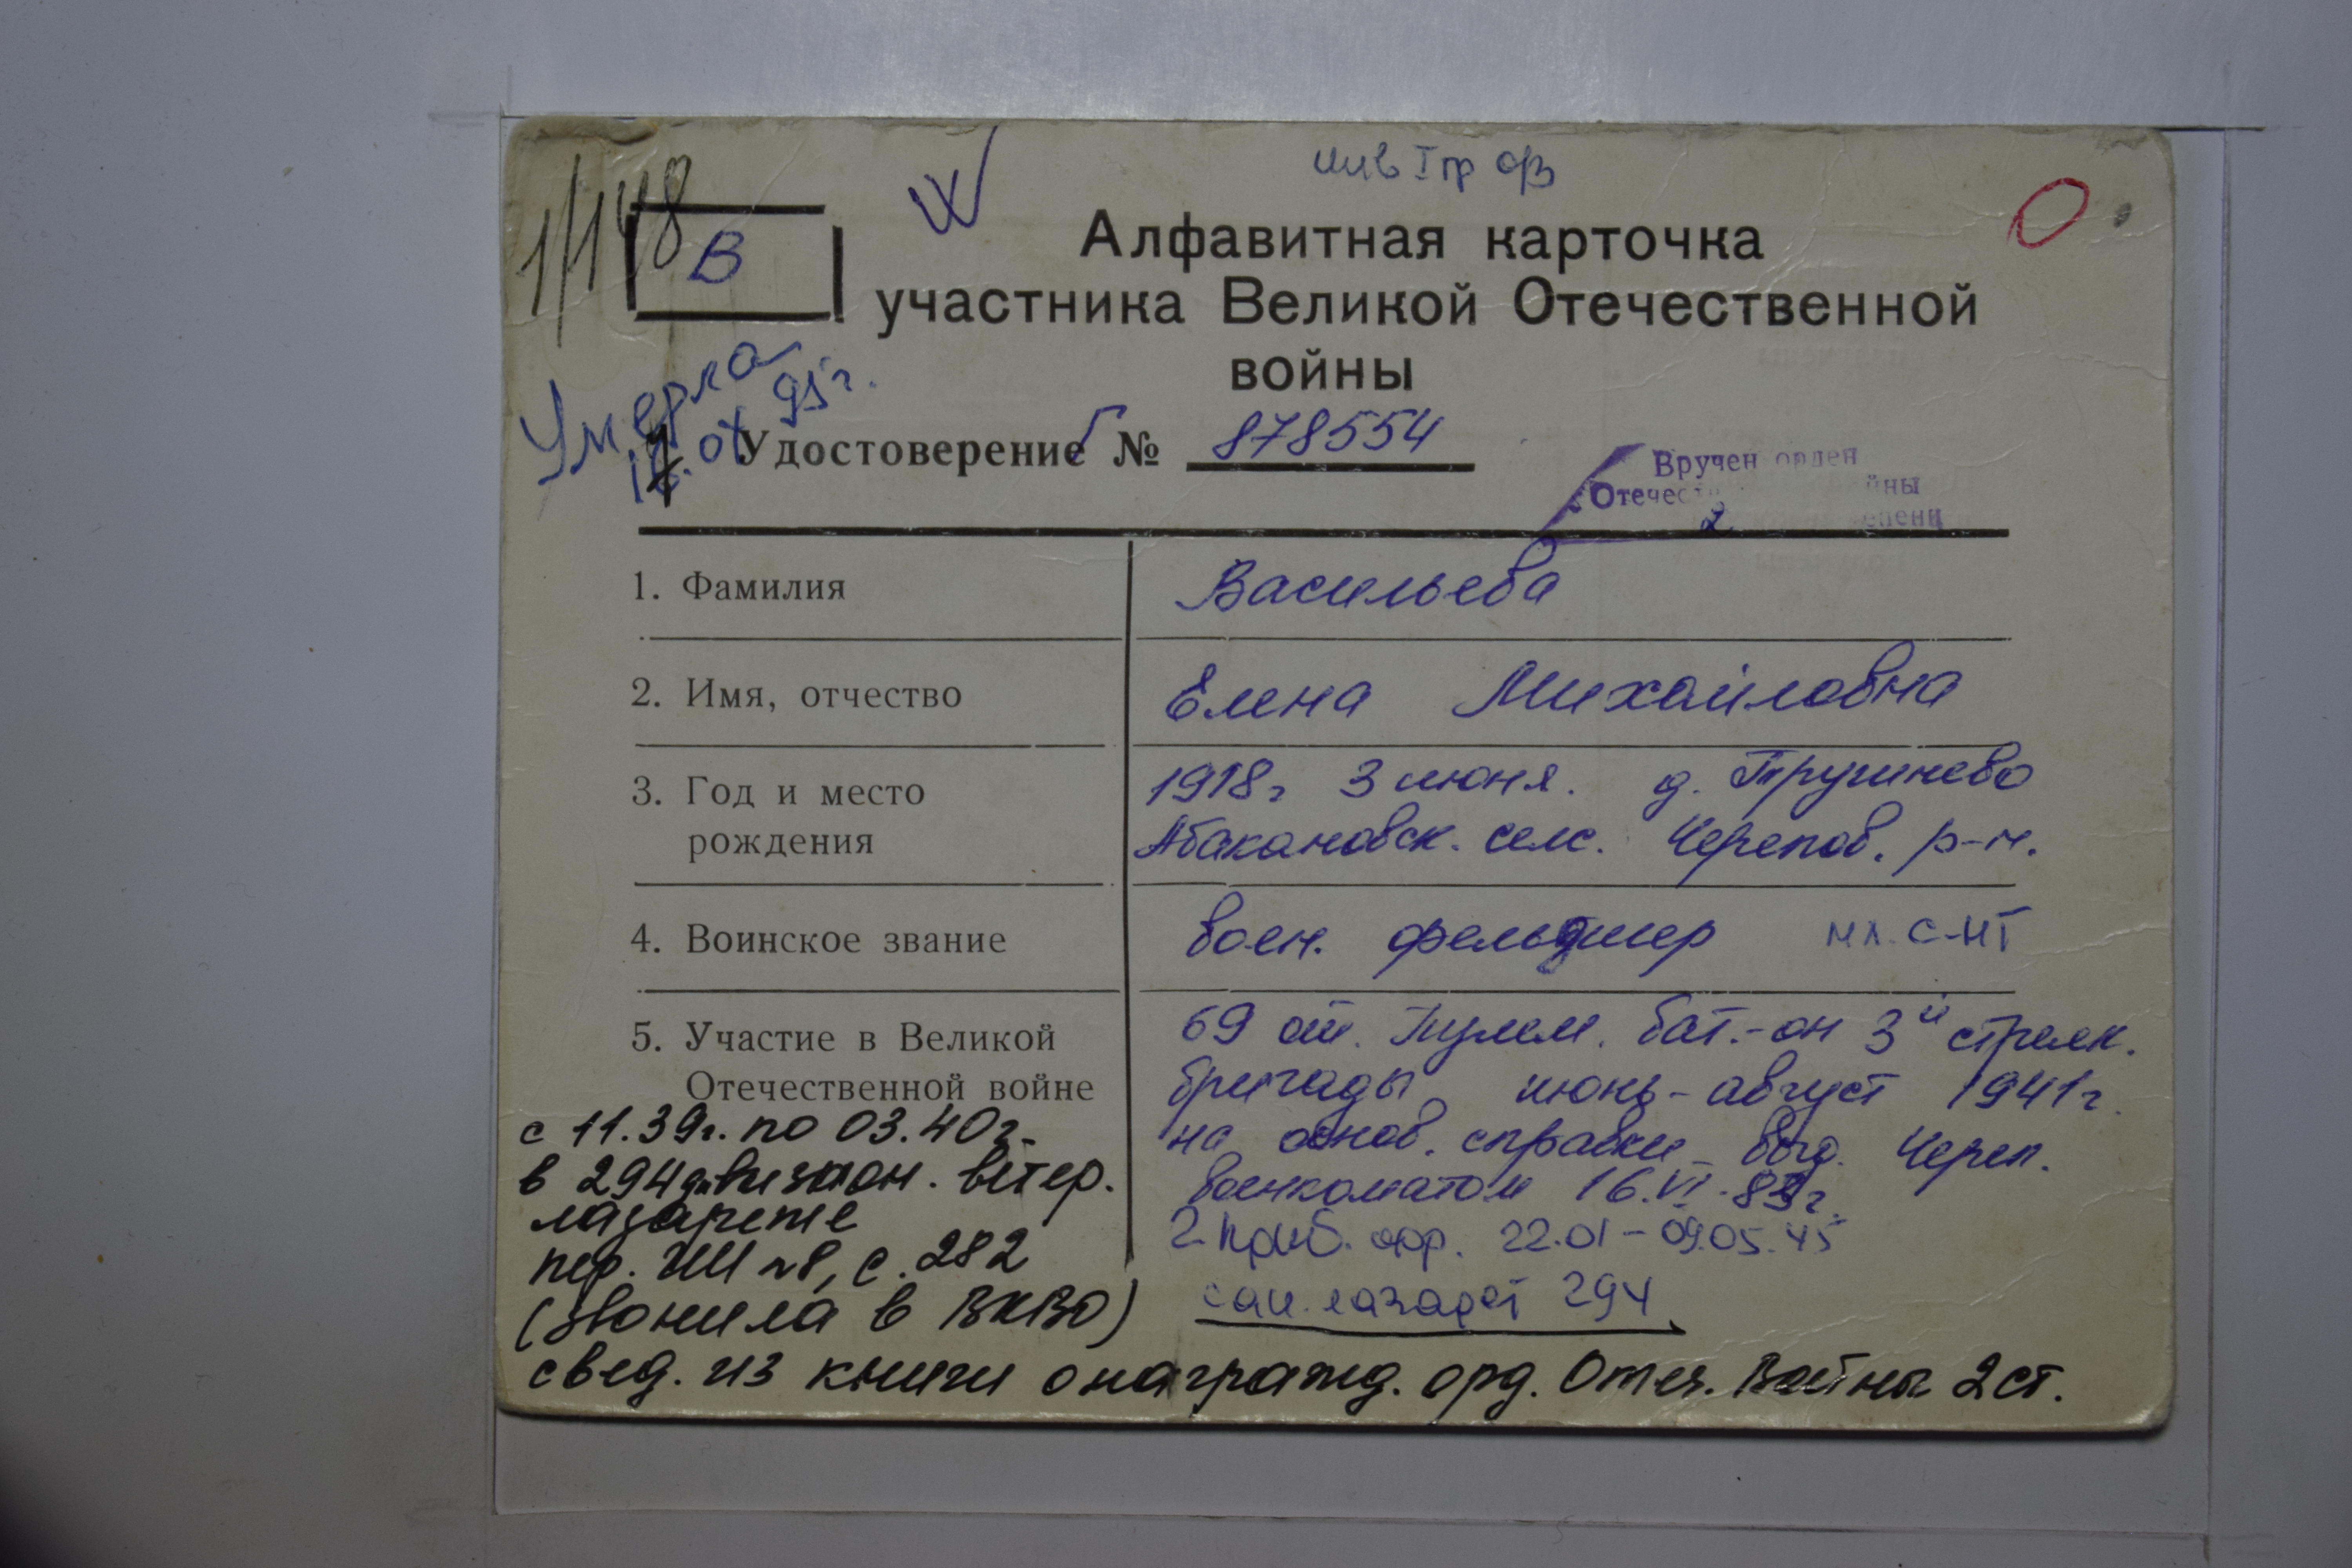 инв I гр ов
1/148
В
Алфавитная карточка
участника Великой Отечественной
войны
Умерла
95г.
Удостоверение Г № 878554
Вручен орден
Отечес йны
2 епени
1. Фамилия Васильева
2. Имя, отчество Елена Михайловна
3. Год и место 1918г 3 июня. д.
рождения Абакановск. селс. Черепов. р-н.
4. Воинское звание воен. фельдшер мл. с-нт
5. Участие в Великой 69 от. Пулем. бат.-он 3й стрелк.
Отечественной войне бригады июнь-август 1941г.
на основ. справки выд. Череп.
военкоматом 16.VI.
2. Приб. фр. 22.01-09.05.45
сан. лазарет 294
с 11.39г. по 03.40г.
в 294 дивизион. ветер.
лазарете
пер. №8, с. 282
(звонила в ВКВО)
свед. из книги о награжд. орд. Отеч. Войны 2 ст.